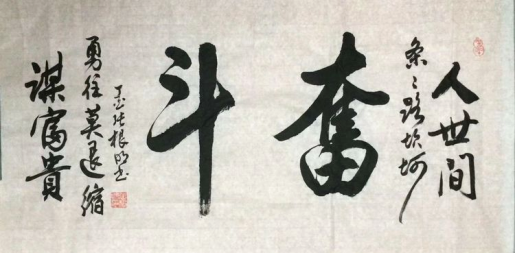 人世间
条々路坎坷
奋斗
勇往莫退缩
谋富贵
张根
书